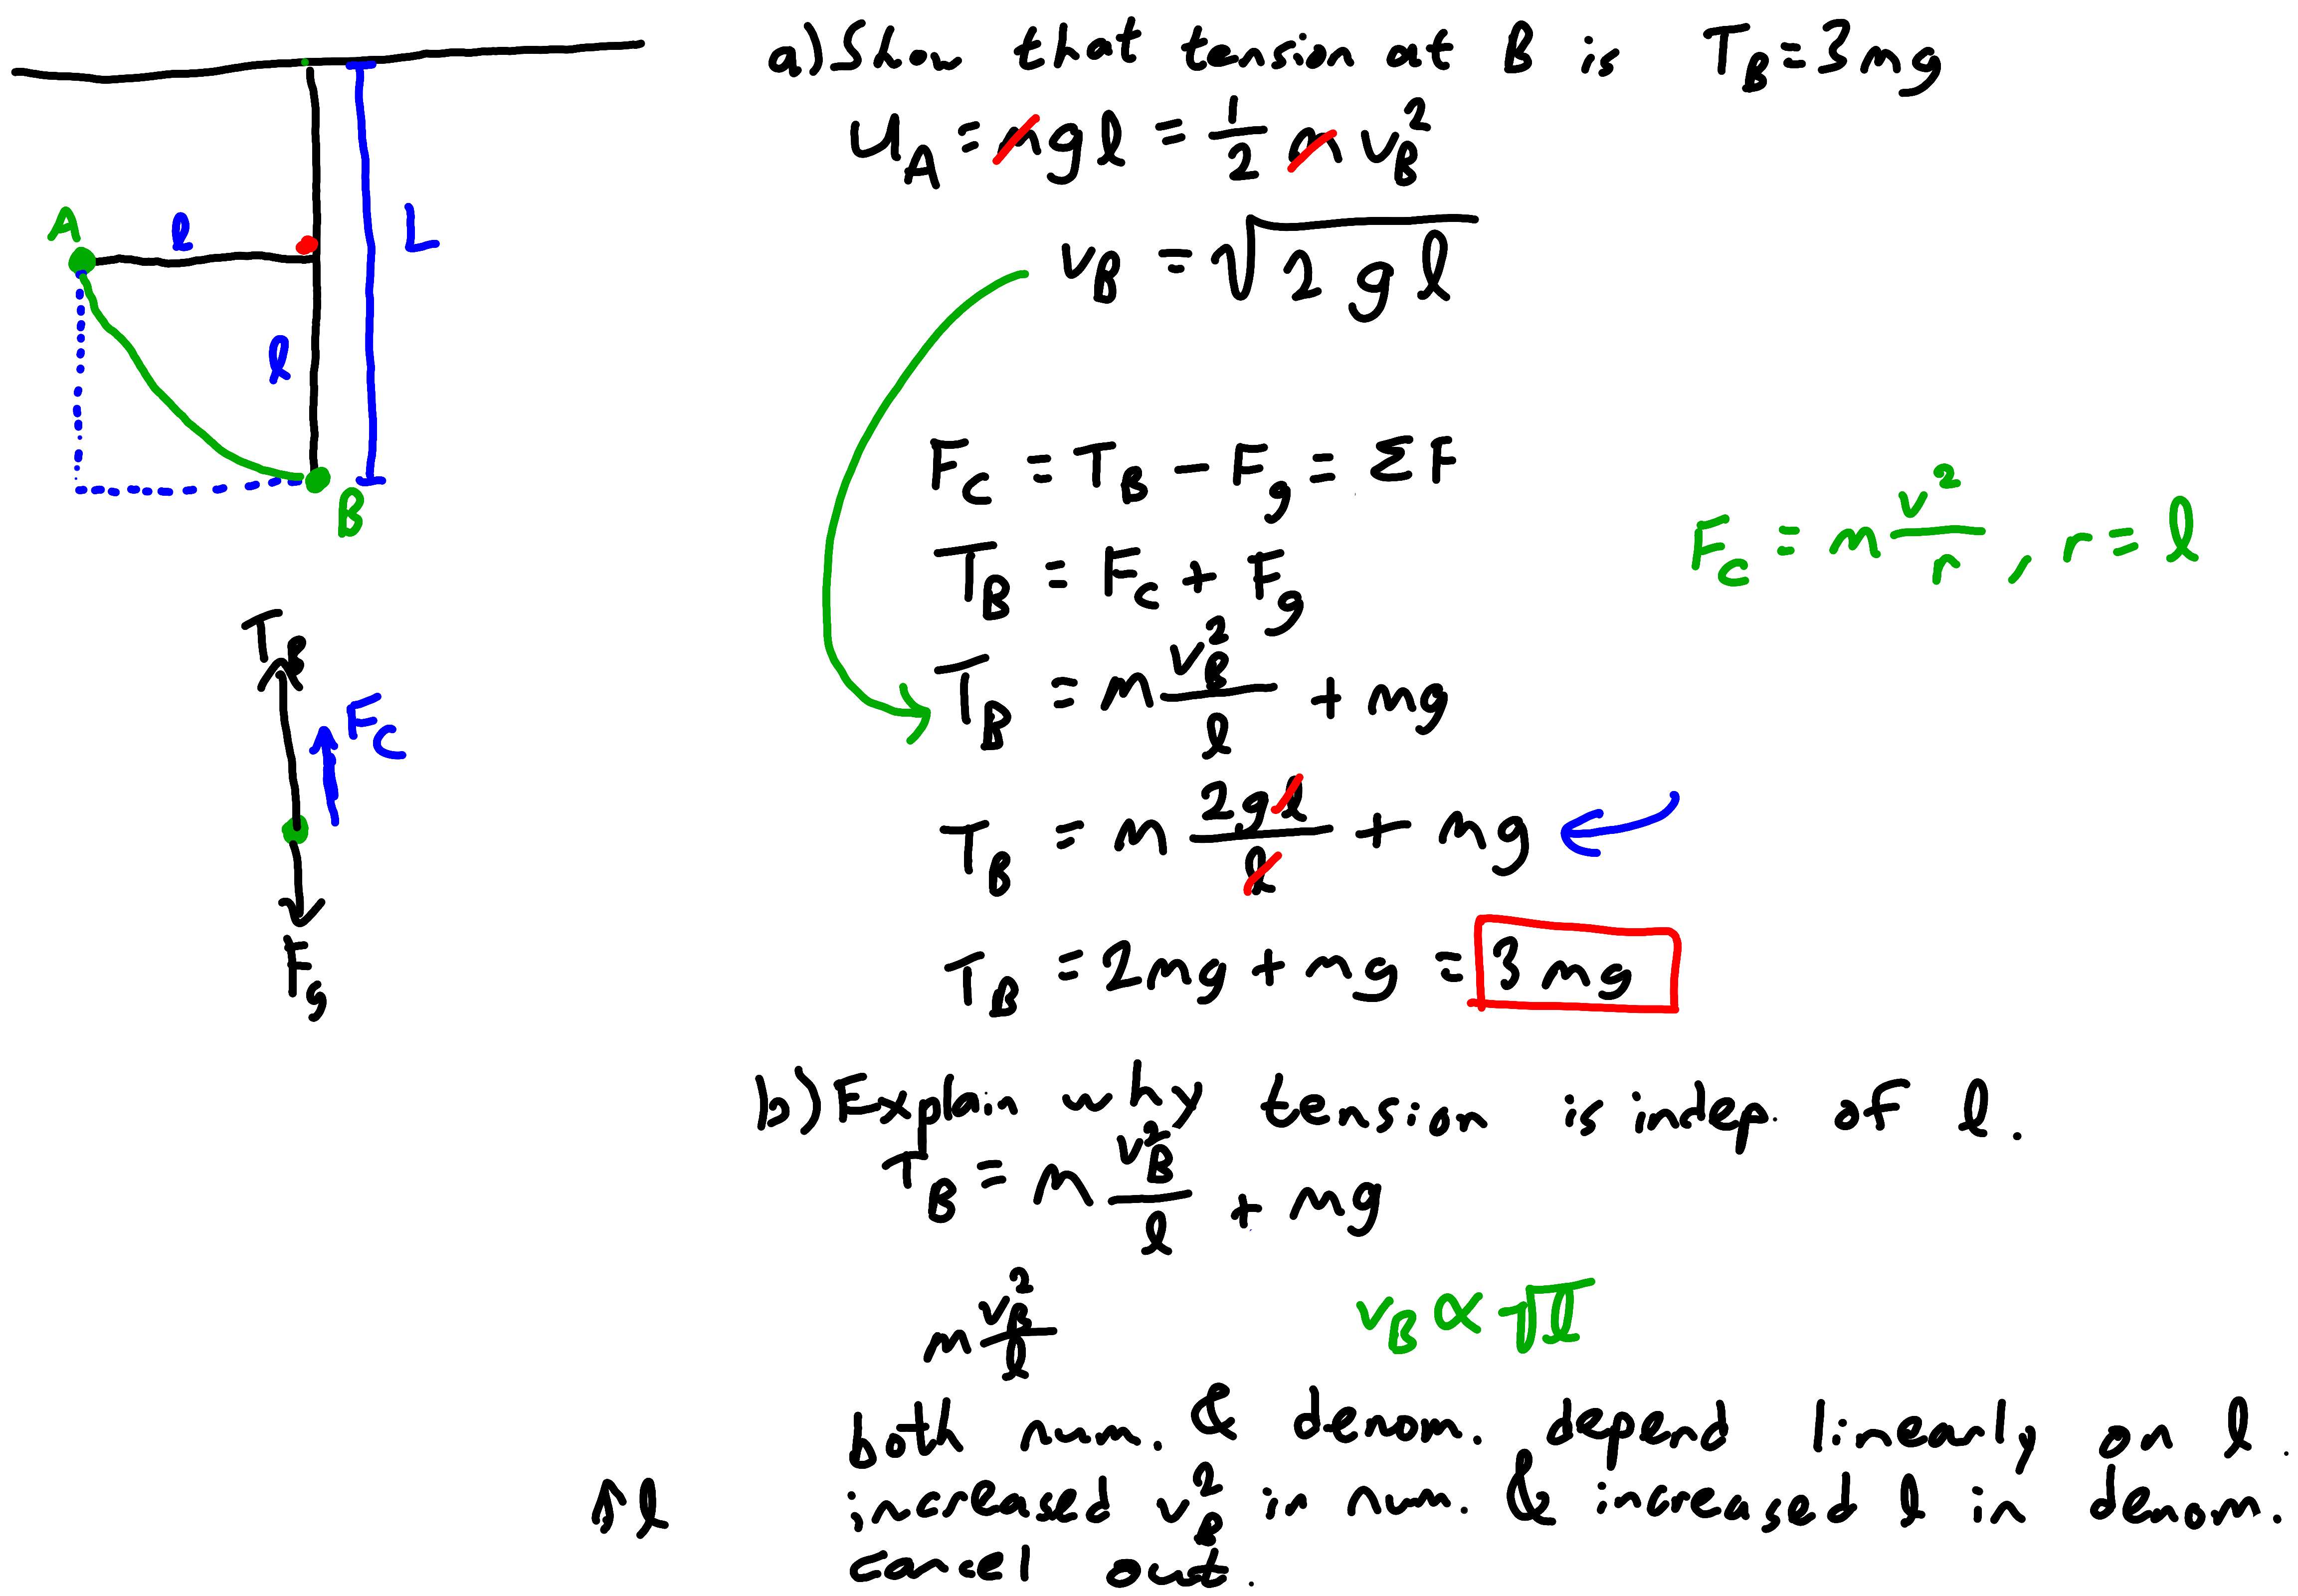 a) Show that tension at B is T_B = 3mg
U_A = mgl = 1/2 m v_B^2
v_B = √(2gl)
A
l
L
l
B
F_c = T_B - F_g = ΣF
F_c = m v^2/r , r = l
T_B = F_c + F_g
T_B = m v_B^2/l + mg
T_B = m 2gl/l + mg
T_B = 2mg + mg = 3mg
T_B
F_c
F_g
b) Explain why tension is indep. of l.
T_B = m v_B^2/l + mg
m v_B^2/l
v_B ∝ √l
both num. & denom. depend linearly on l.
↑l
increased v_B^2 in num. & increased l in denom.
cancel out.